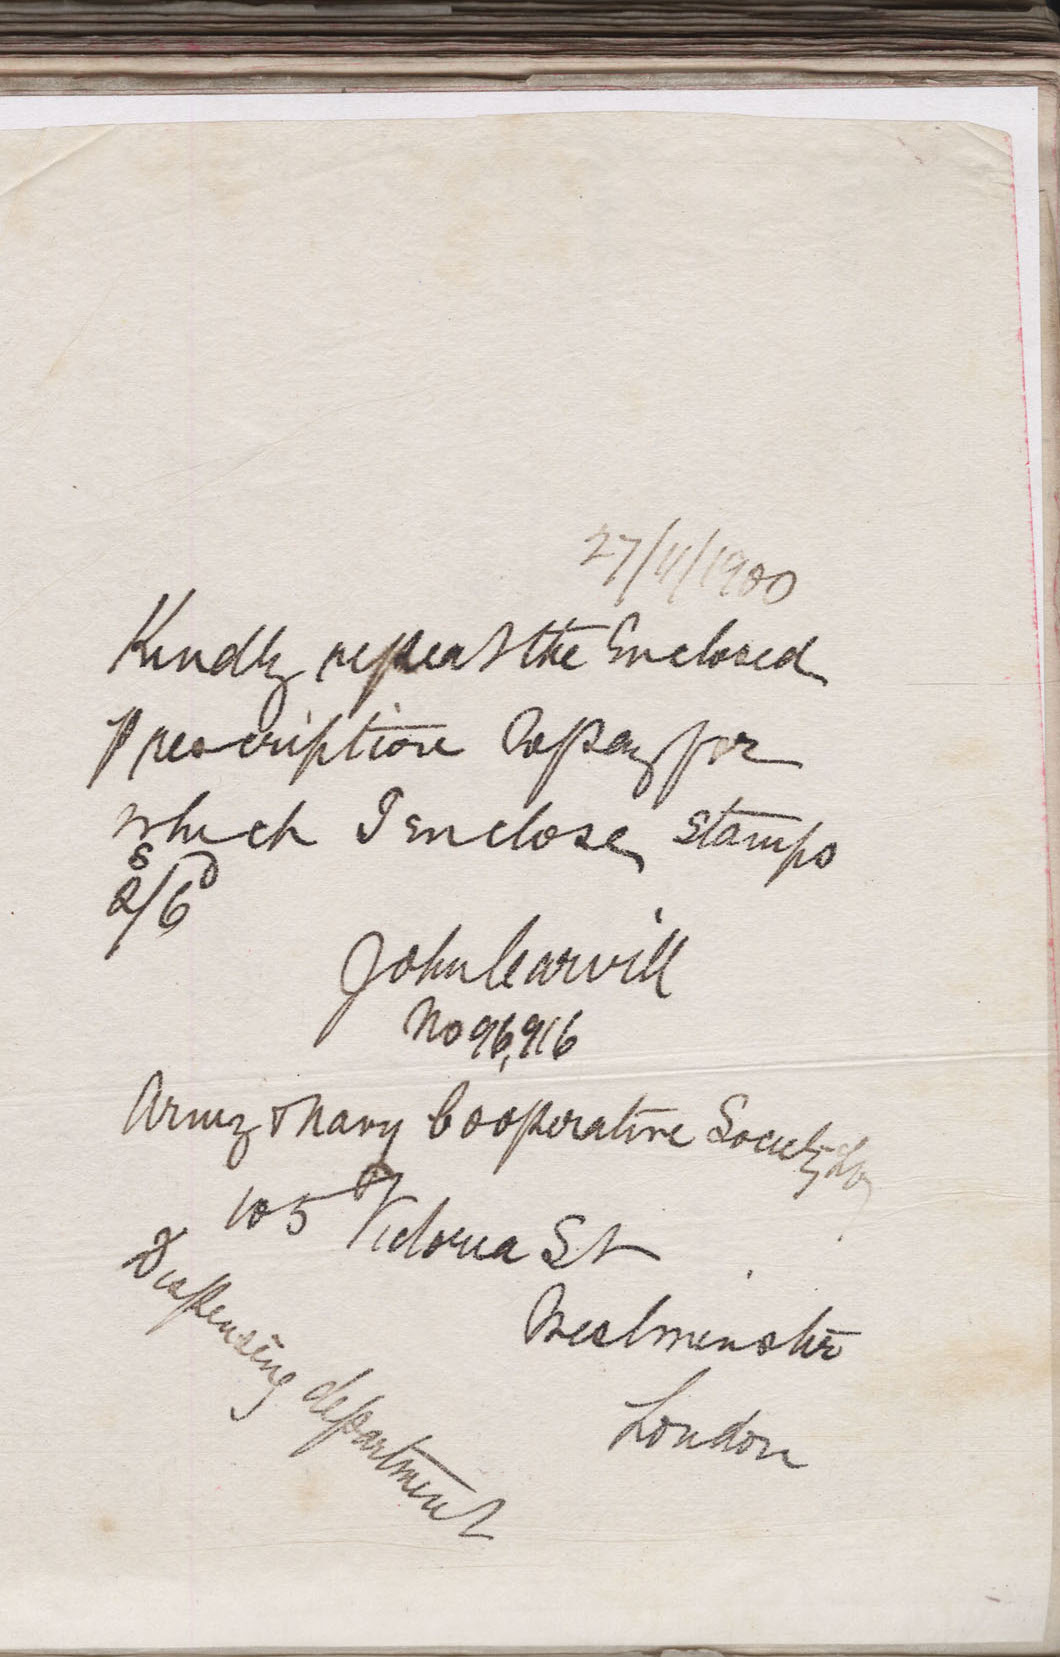 27/4/1900
Kindly repeat the Enclosed
Prescription to pay for
which I enclose stamps
2s/6d
John Carvill
No 96,916
Army & Navy Cooperative Society Ld
105 Victoria St
Westminster
London
Dispensing department